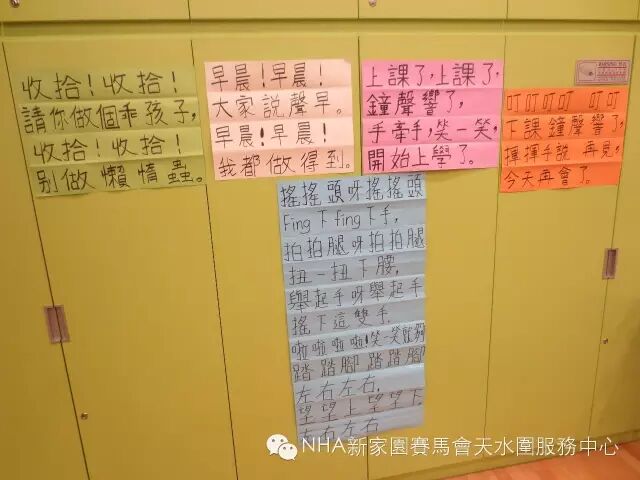 收拾！收拾！
請你做個乖孩子,
收拾！收拾！
別做懶惰蟲。
早晨！早晨！
大家說聲早。
早晨！早晨！
我都做得到。
上課了,上課了,
鐘聲響了,
手牽手,笑一笑,
開始上學了。
叮叮叮叮 叮叮
下課鐘聲響了,
揮揮手說 再見,
今天再會了。
搖搖頭呀搖搖頭
Fing下fing下手,
拍拍腿呀拍拍腿
扭一扭下腰,
舉起手呀舉起手
搖下這雙手,
啦啦啦啦!笑一笑就夠
踏踏腳 踏踏腳
左右左右,
望望上望望下
左右左右
NHA新家園賽馬會天水圍服務中心